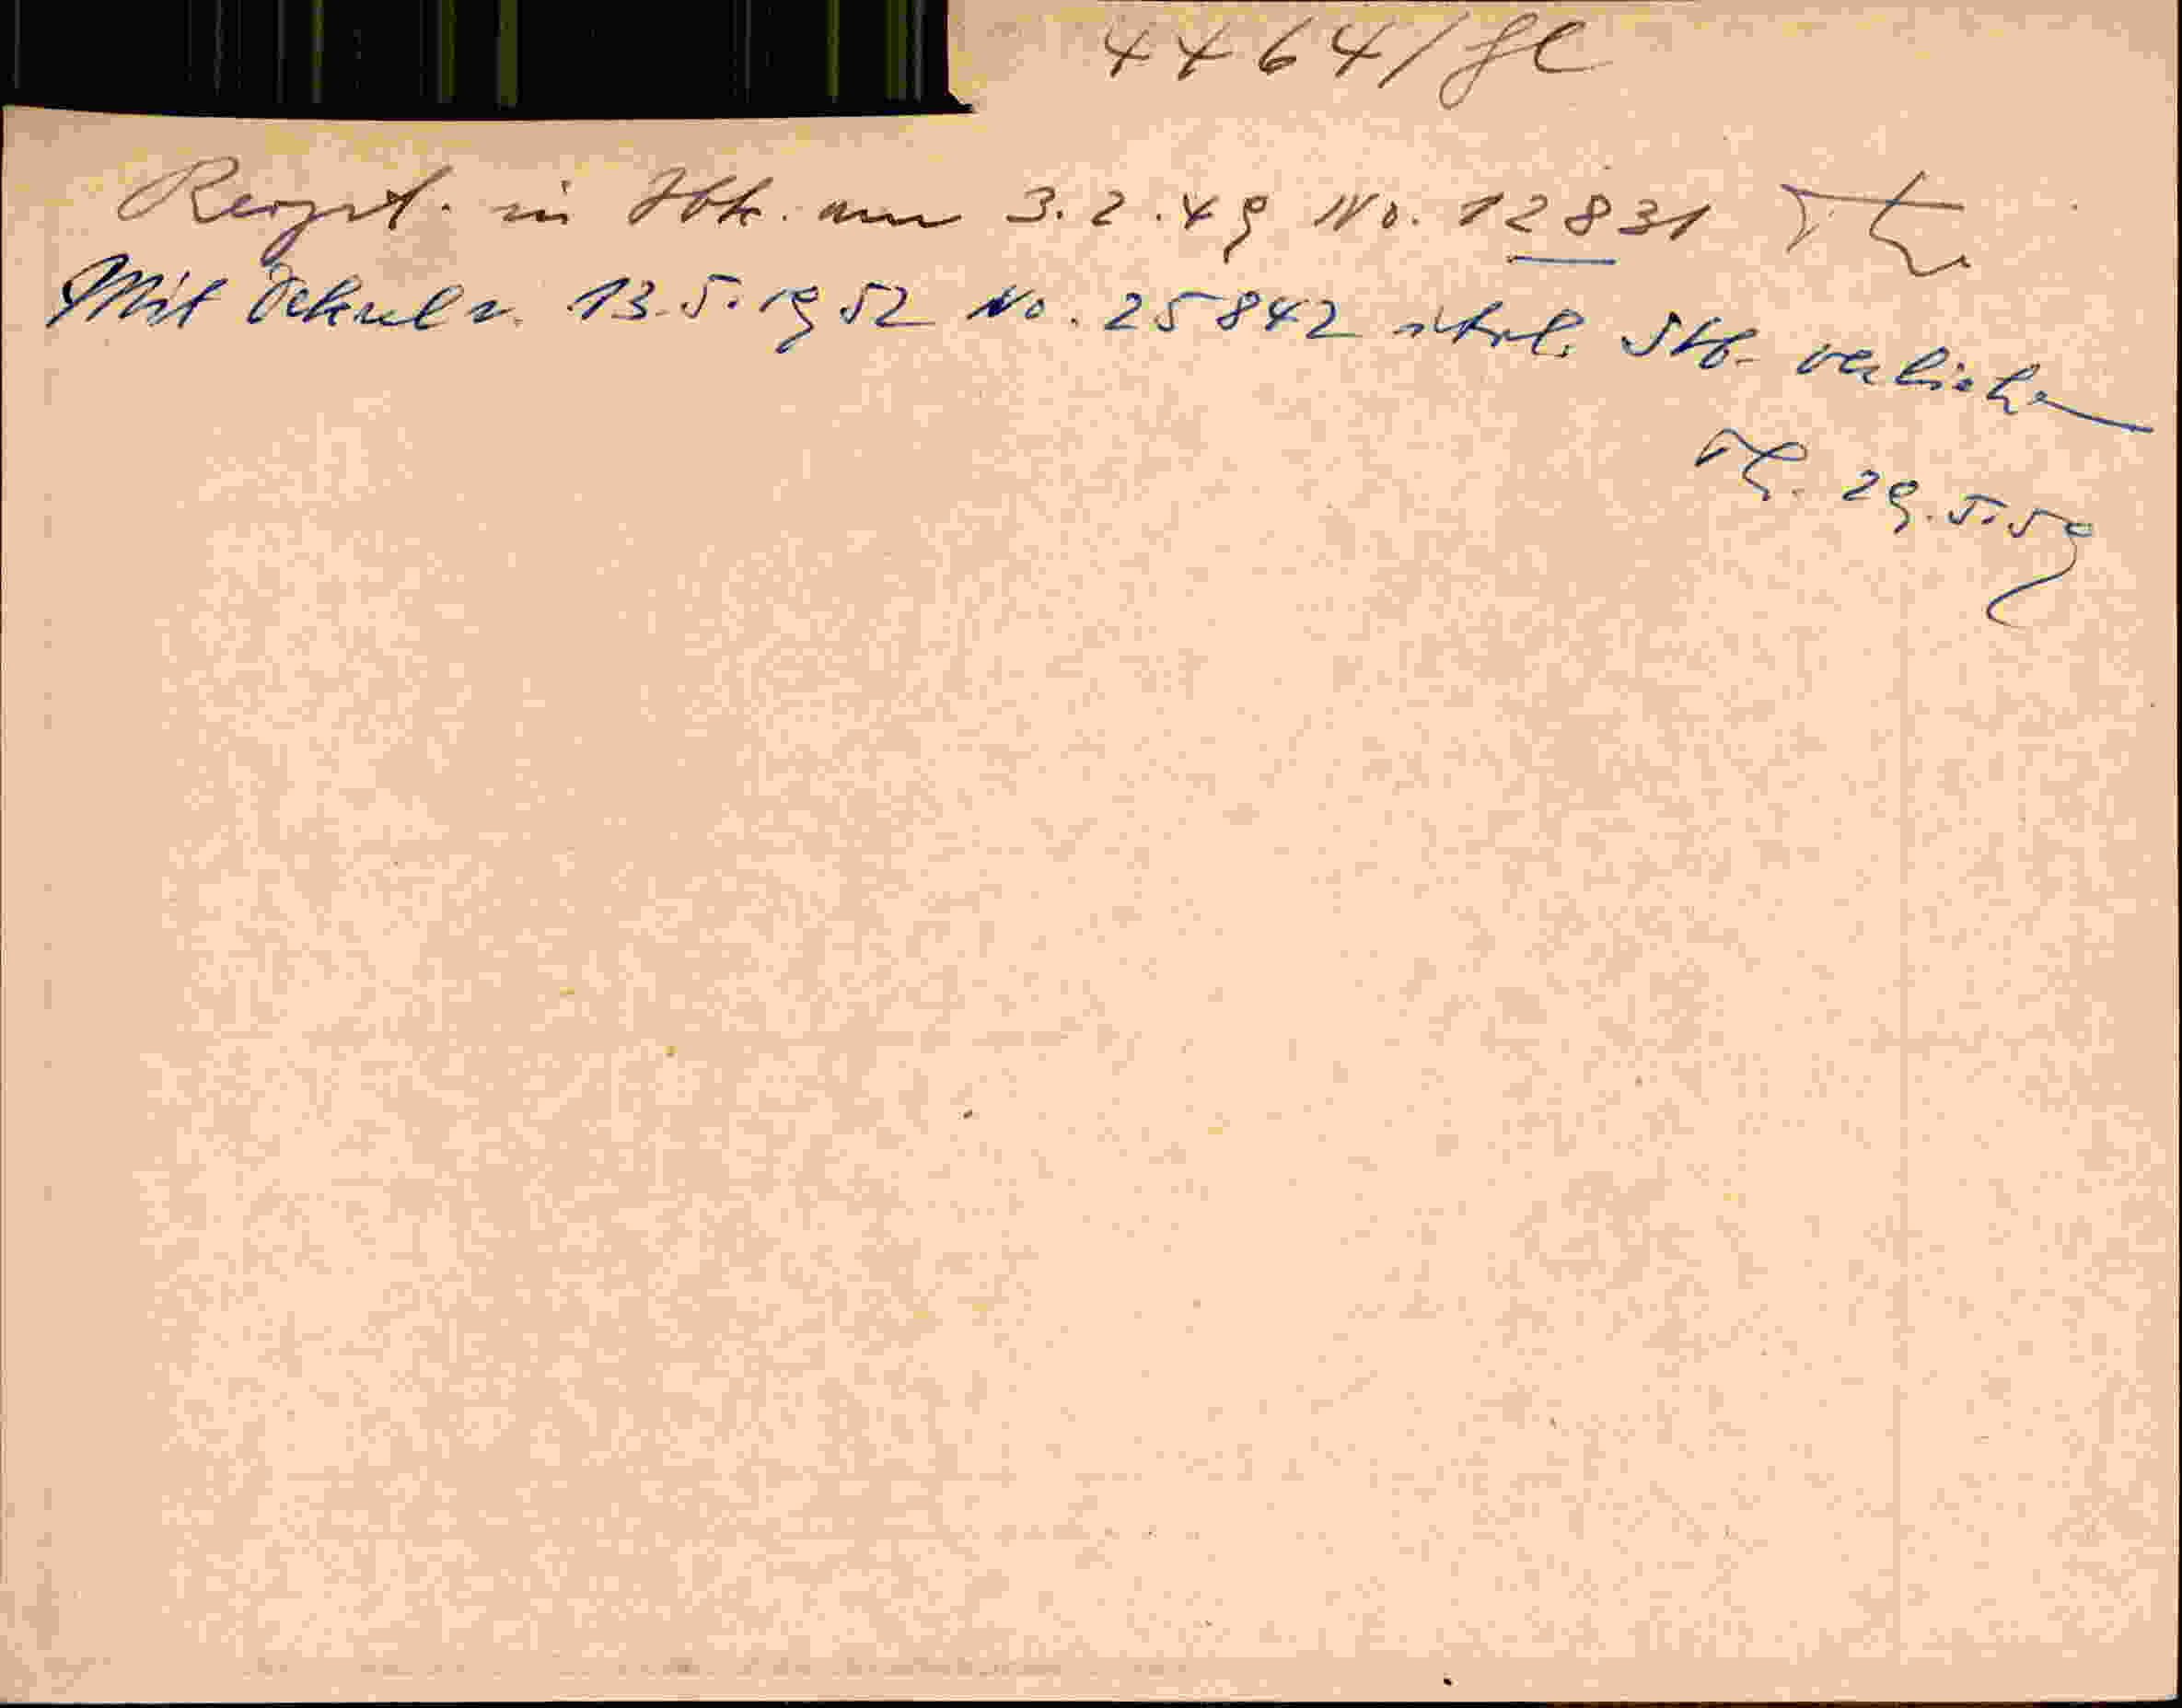 4464/fl
Regist. in Hbk. am 3.2.49 No. 12831
Mit Dekret v. 13.5.1952 No. 25842 Stb. verliehen
29.5.59